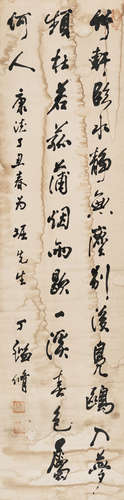 竹軒臨水靜無塵別後鳧鷗入夢
頻杜若菰蒲烟雨歇一溪春色屬
何人 康德丁丑春為振先生 丁鑑脩